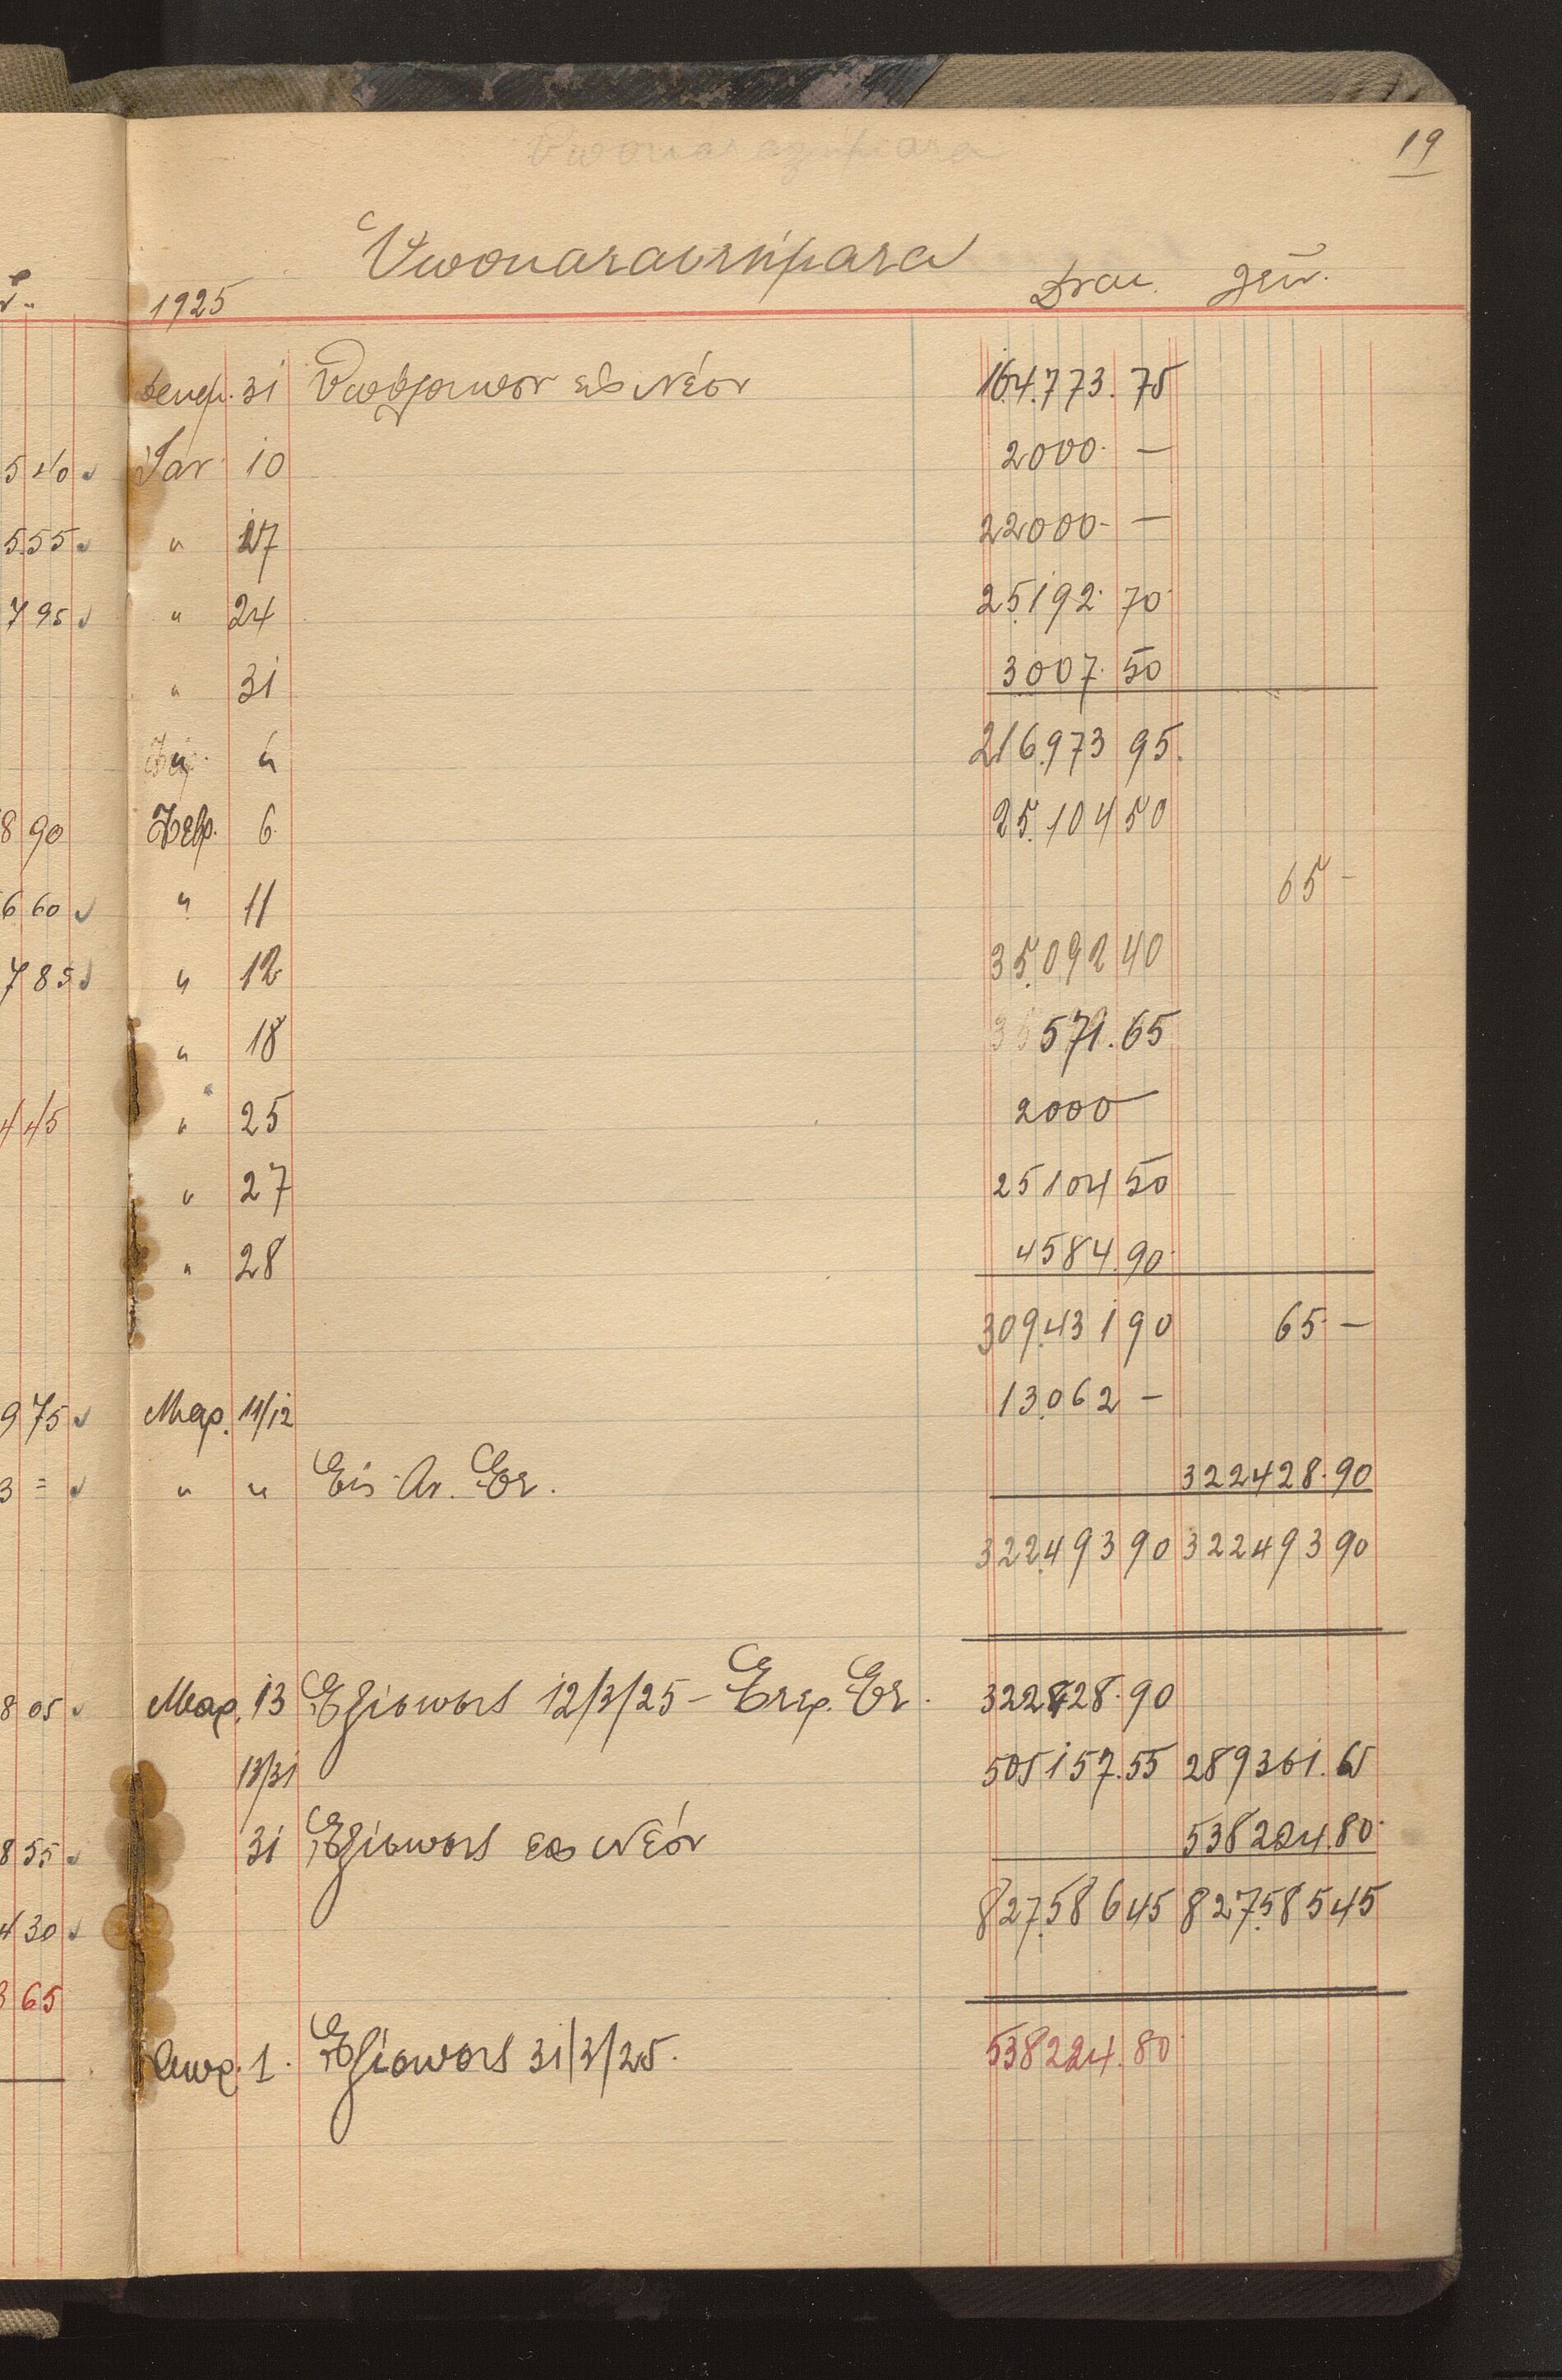 19
Υποκαταστήματα
1925 Δται. Πιν.
Δεκεμ. 31 Υπόλοιπον εις Νέον 164.773.75
Ιαν. 10 2000. —
" 17 22000- —
" 24 25192. 70
" 31 3007. 50
216.973 95.
Φεβρ. 6 25.104 50
" 11 65 —
" 12 35.092 40
" 18 571.65
" 25 2000 —
" 27 25104 50
" 28 4584.90
309.431 90 65. —
Μαρ. 11/12 13.062 —
" " Εις Αν. Επ. 322428.90
322.493 90 322493 90
Μαρ. 13 Εξίσωσις 12/3/25 - Ετερ. Επ. 322428.90
13/31 505157.55 289361.65
31 Εξίσωσις εις Νέον 538224.80
827.586 45 827.585 45
Απρ. 1. Εξίσωσις 31/3/25. 538224.80
540 ✓
555 ✓
795 ✓
8 90
660 ✓
785 ✓
4 45
975 ✓
3 = ✓
8 05 ✓
855 ✓
430 ✓
3 65